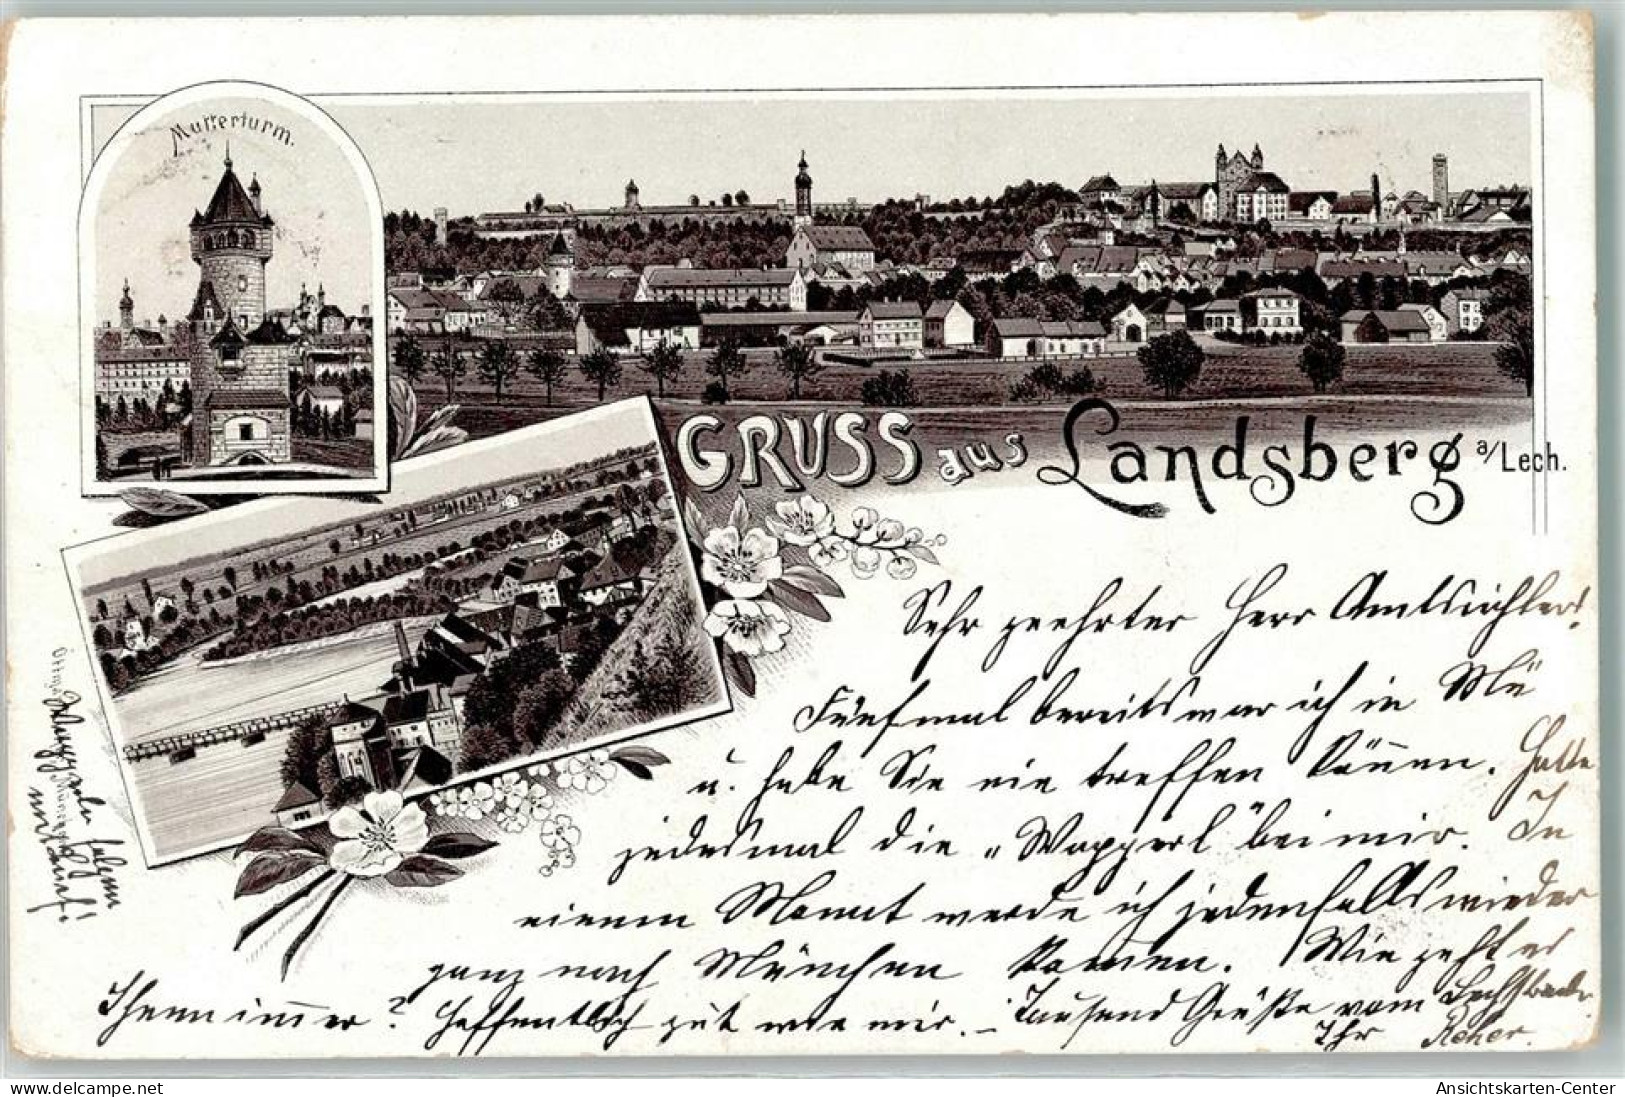 Mutterturm.
GRUSS aus Landsberg a/Lech.
Sehr geehrter Herr Amtsrichter!
Fünfmal bereits war ich in Mü
u. habe Sie nie treffen können. Hatte
jedesmal die „Wapperl" bei mir. In
einem Monat werde ich jedenfalls wieder
ganz nach München kommen. Wie geht es
Ihnen immer? Hoffentlich gut wie mir. – Tausend Grüße vom
Ihr
fehlen
Ansichtskarten-Center